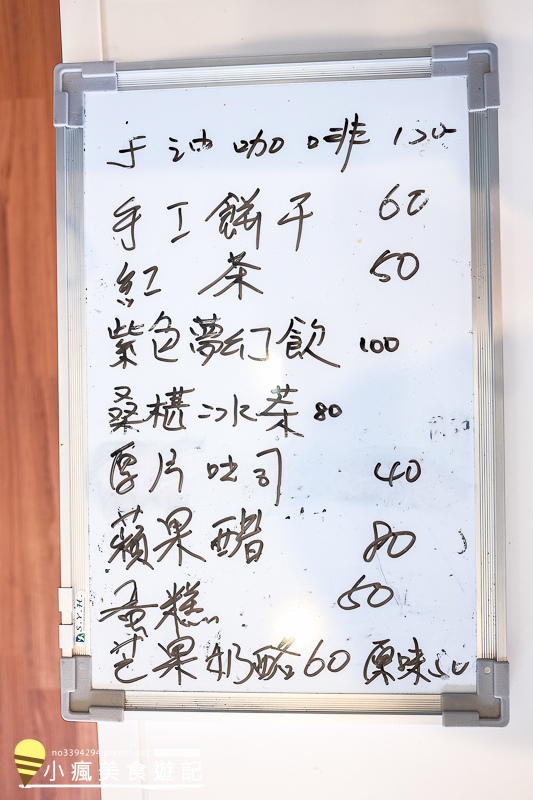 手沖咖啡 120
手工餅干 60
紅茶 50
紫色夢幻飲 100
桑椹冰茶 80
厚片吐司 40
蘋果醋 80
蛋糕 50
芒果奶酪60 原味50
S.Y.H.
小瘋美食遊記